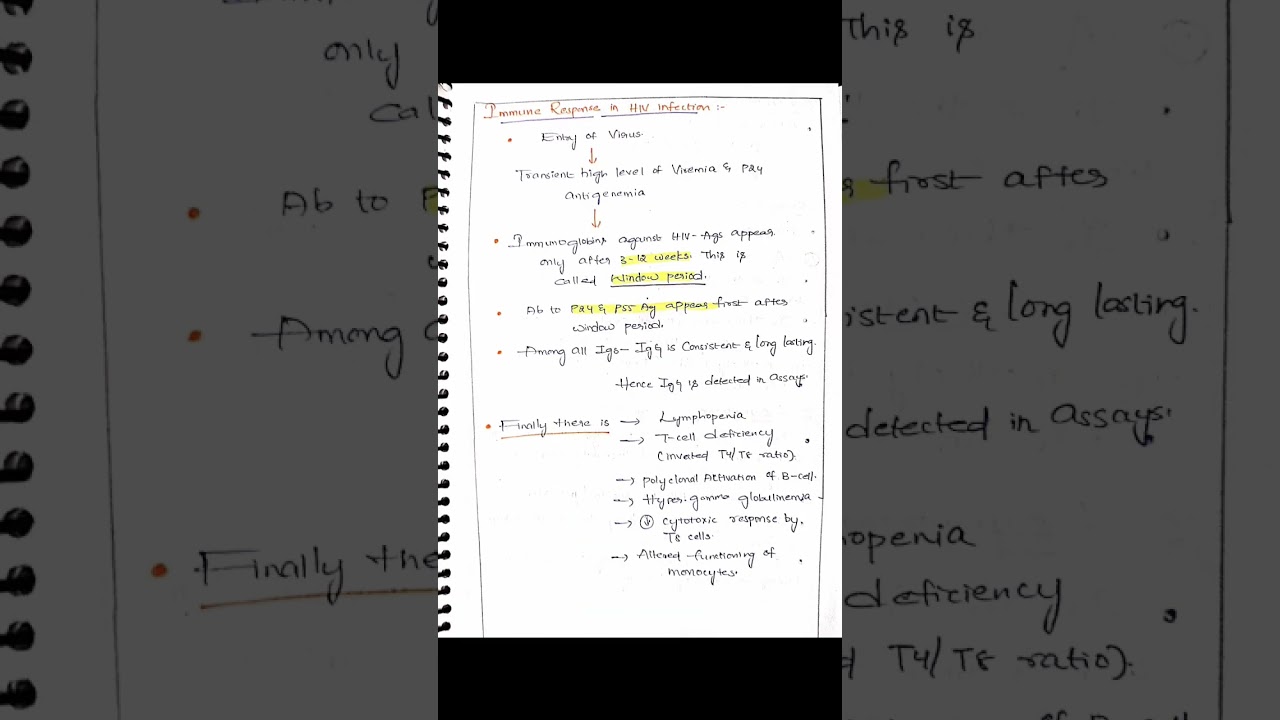 Immune Response in HIV infection :-
• Entry of Virus.
↓
Transient high level of Viremia & P24
antigenemia
↓
• Immunoglobins against HIV-Ags appear
only after 3-12 weeks. This is
called Window period.
• Ab to P24 & P55 Ag appear first after
window period.
• Among all Igs- IgG is Consistent & long lasting.
Hence IgG is detected in assays.
• Finally there is → Lymphopenia
→ T-cell deficiency
(inverted T4/T8 ratio).
→ polyclonal Activation of B-cell.
→ Hyper-gamma globulinemia
→ ↓ cytotoxic response by
T8 cells.
→ Altered functioning of
monocytes.